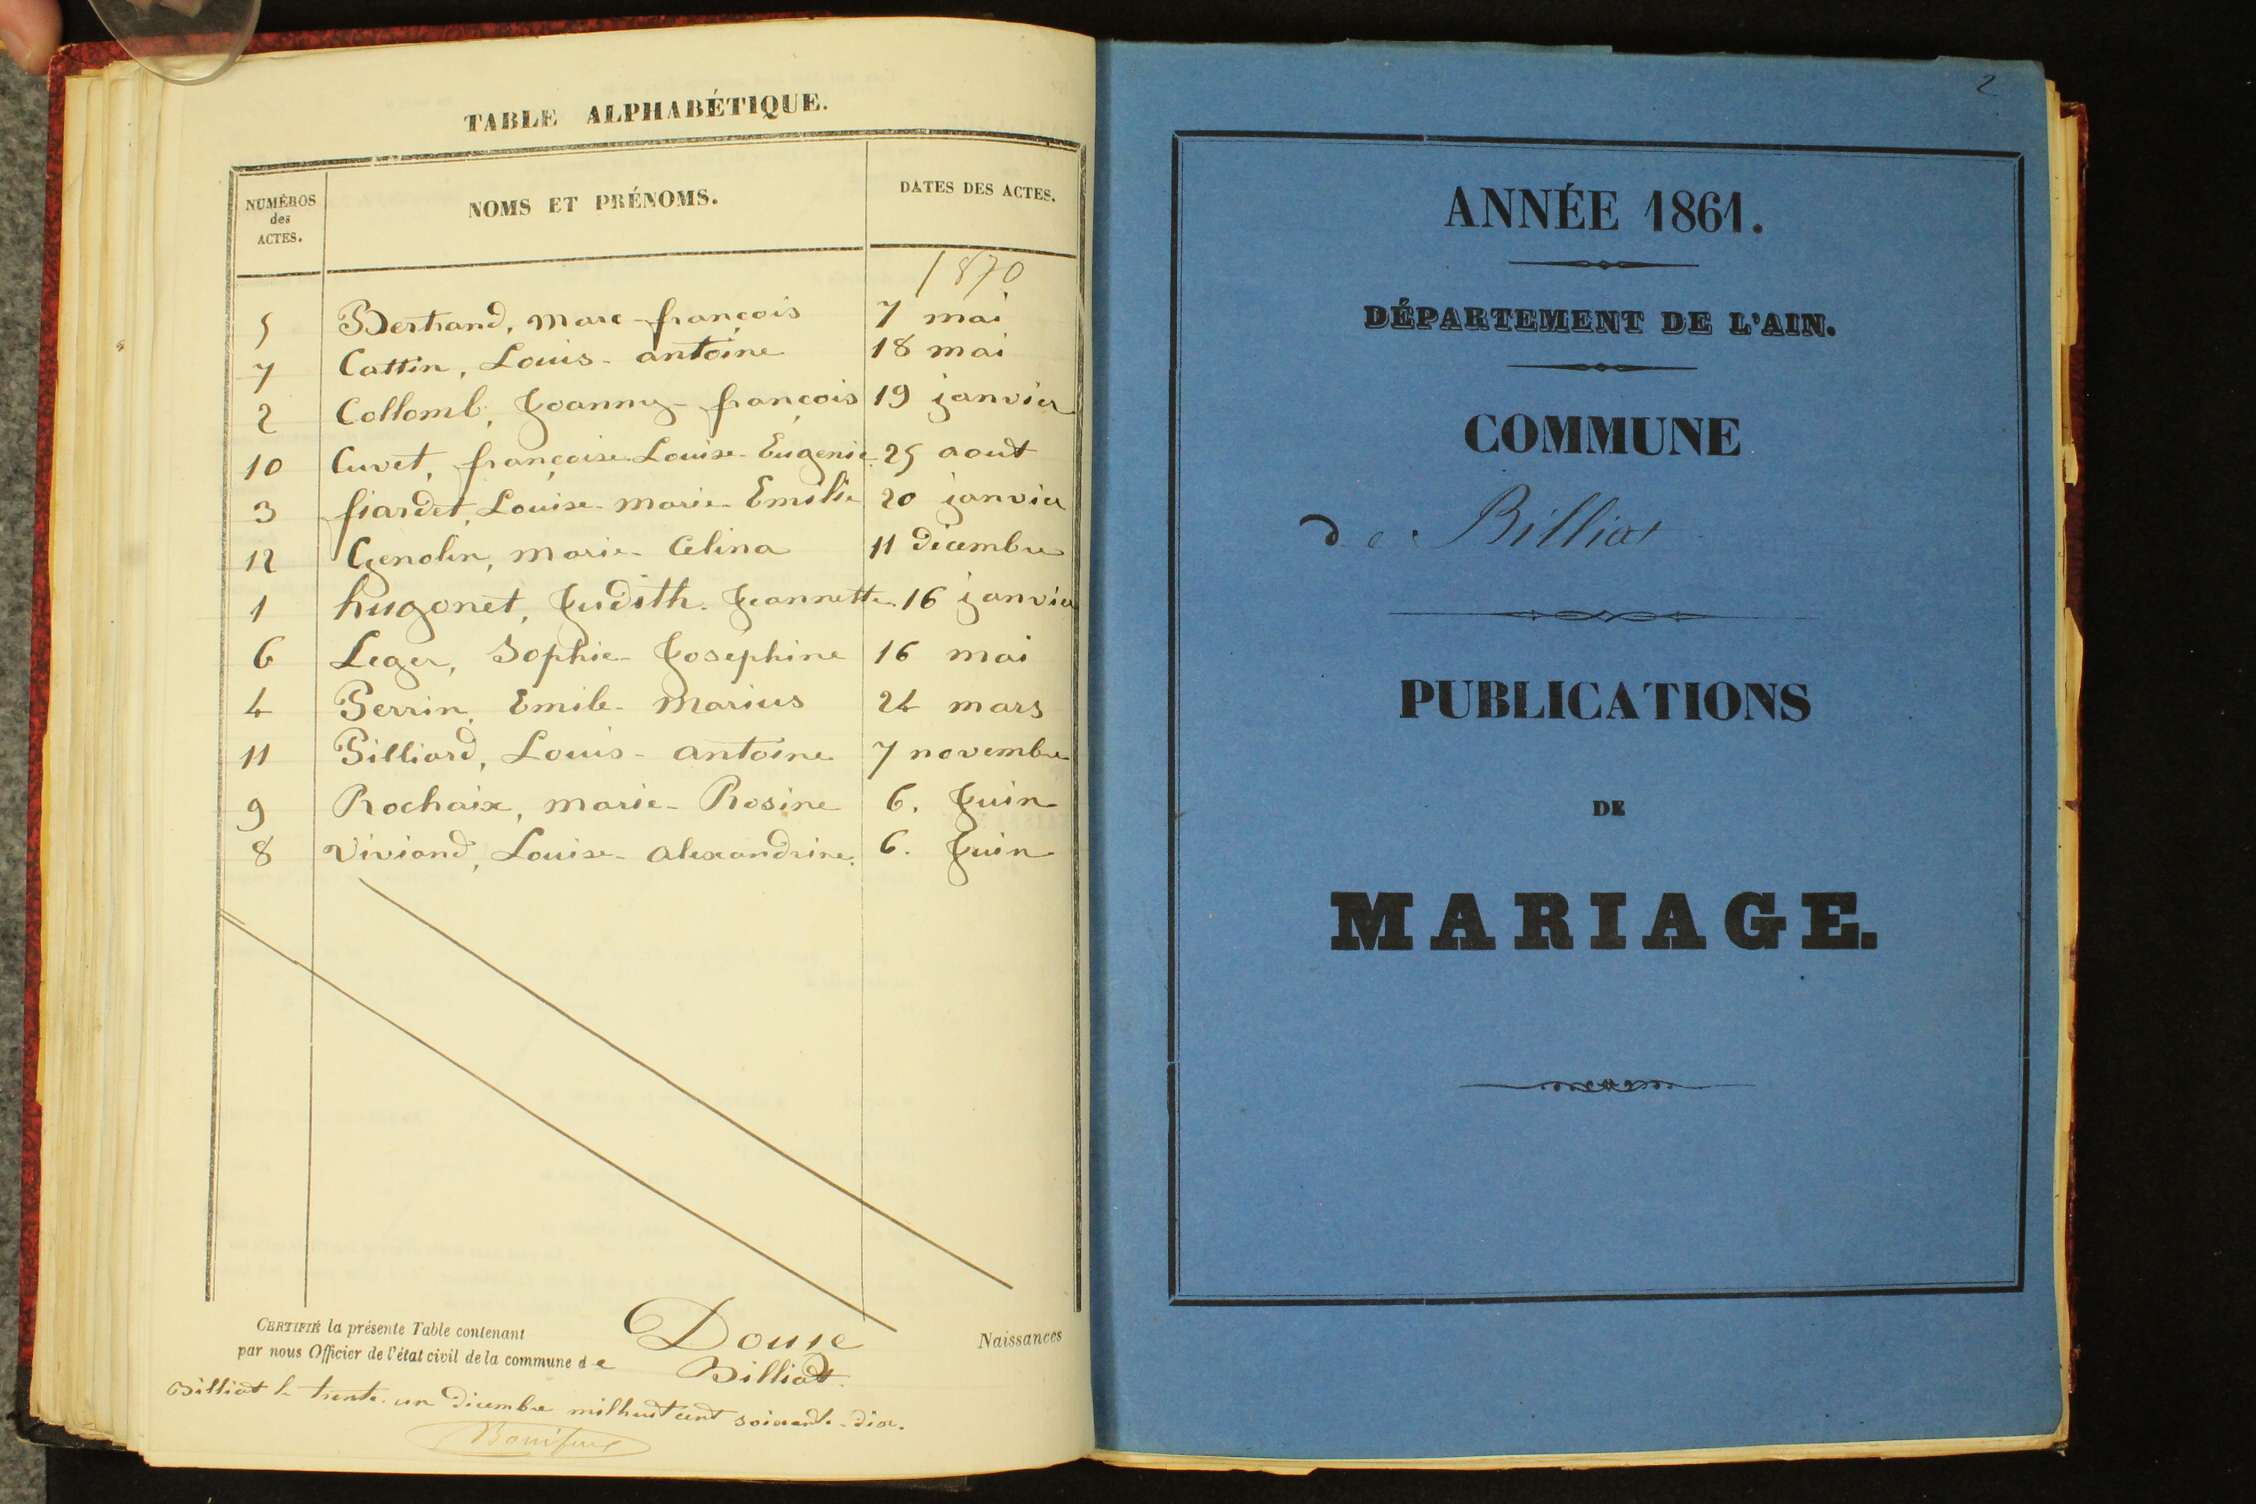 TABLE ALPHABÉTIQUE.
NUMÉROS des ACTES.
NOMS ET PRÉNOMS.
DATES DES ACTES.
1870
5 Bertrand, Marc françois 7 mai
7 Cattin, Louis-antoine 18 mai
2 Collomb, Joanny-françois 19 janvier
10 Cuvet, françoise Louise-Eugenie 25 aout
3 fiardet, Louise-Marie-Emilie 20 janvier
12 Genolin, Marie-Celina 11 decembre
1 hugonet, Judith-Jeannette 16 janvier
6 Leger, Sophie-Josephine 16 mai
4 Perrin, Emile-Marius 24 mars
11 Pilliard, Louis-antoine 7 novembre
9 Rochaix, Marie-Rosine 6. Juin
8 Viviand, Louise-alexandrine. 6. Juin
CERTIFIÉ la présente Table contenant Douze Naissances
par nous Officier de l'état civil de la commune de Billiat.
Billiat le trente-un decembre mil huit cent soixante-dix.
2
ANNÉE 1861.
DÉPARTEMENT DE L'AIN.
COMMUNE
de Billiat
PUBLICATIONS
DE
MARIAGE.